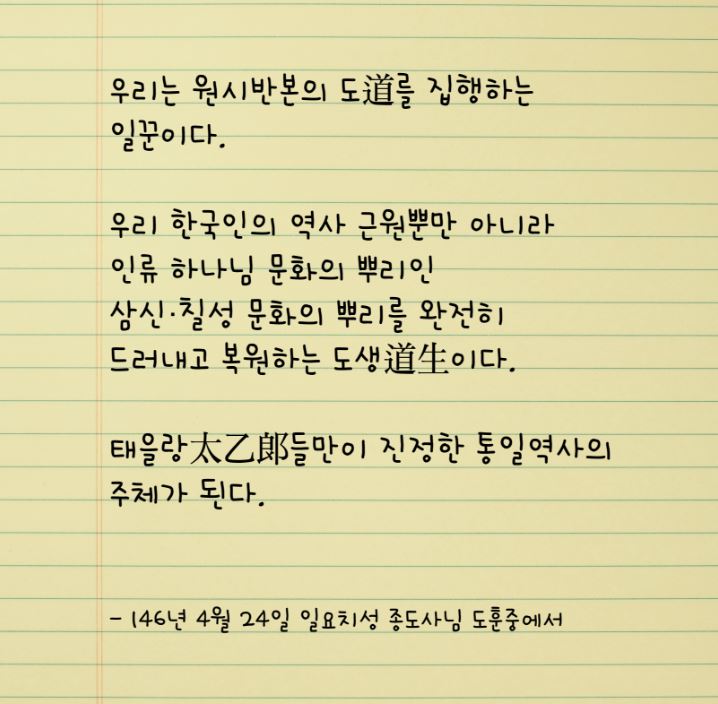 우리는 원시반본의 도道를 집행하는
일꾼이다.
우리 한국인의 역사 근원뿐만 아니라
인류 하나님 문화의 뿌리인
삼신·칠성 문화의 뿌리를 완전히
드러내고 복원하는 도생道生이다.
태을랑太乙郞들만이 진정한 통일역사의
주체가 된다.
- 146년 4월 24일 일요치성 종도사님 도훈중에서